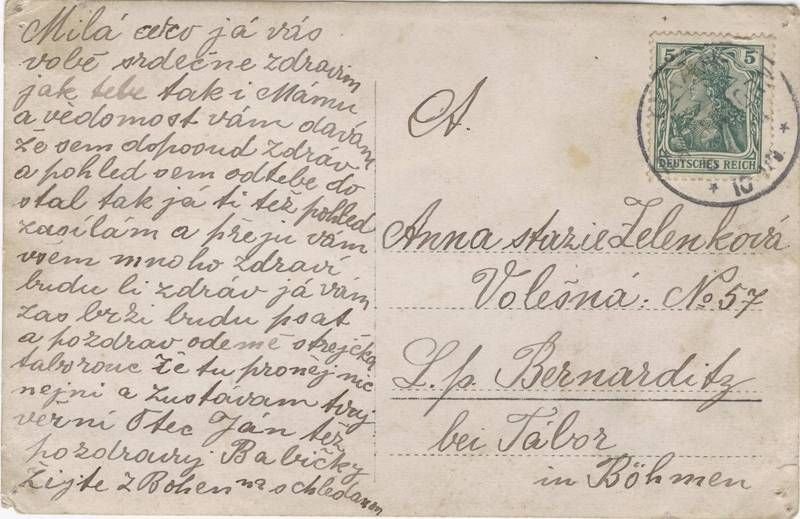 Milá cerco já vás
vobě srdečne zdravim
jak tebe tak i Mámu
a vědomost vám dávám
že sem doposud zdráv
a pohled sem odtebe do
stal tak já ti též pohled
zasílám a přeju vám
všem mnoho zdraví
budu li zdráv já vám
zas brži budu psat
a pozdrav odemě strejčka
taborouc že tu proněj nic
nejni a zustávam tvuj
věrní Otec Ján též
pozdravuj Babičky
žijte z Bohem na schledanou
A.
Anna stazie Zelenková
Volešná. No 57
L. p. Bernarditz
bei Tábor
in Böhmen
5 5
DEUTSCHES REICH